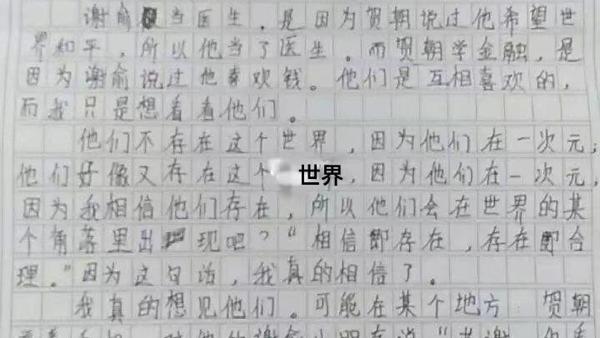 谢俞当医生，是因为贺朝说过他希望世
界和平，所以他当了医生。而贺朝学金融，是
因为谢俞说过他喜欢钱。他们是互相喜欢的，
而我只是想看看他们。
他们不存在这个世界，因为他们在一次元；
他们好像又存在这个世界，因为他们在一次元，
因为我相信他们存在，所以他们会在世界的某
个角落里出现吧？“相信即存在，存在即合
理。”因为这句话，我真的相信了。
我真的想见他们。可能在某个地方 贺朝